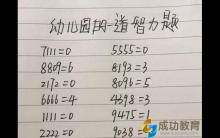 幼儿园的一道智力题
7111=0 5555=0
8809=6 8193=3
2172=0 8096=5
6666=4 4398=3
1111=0 9475=1
2222=0 9038
成功教育